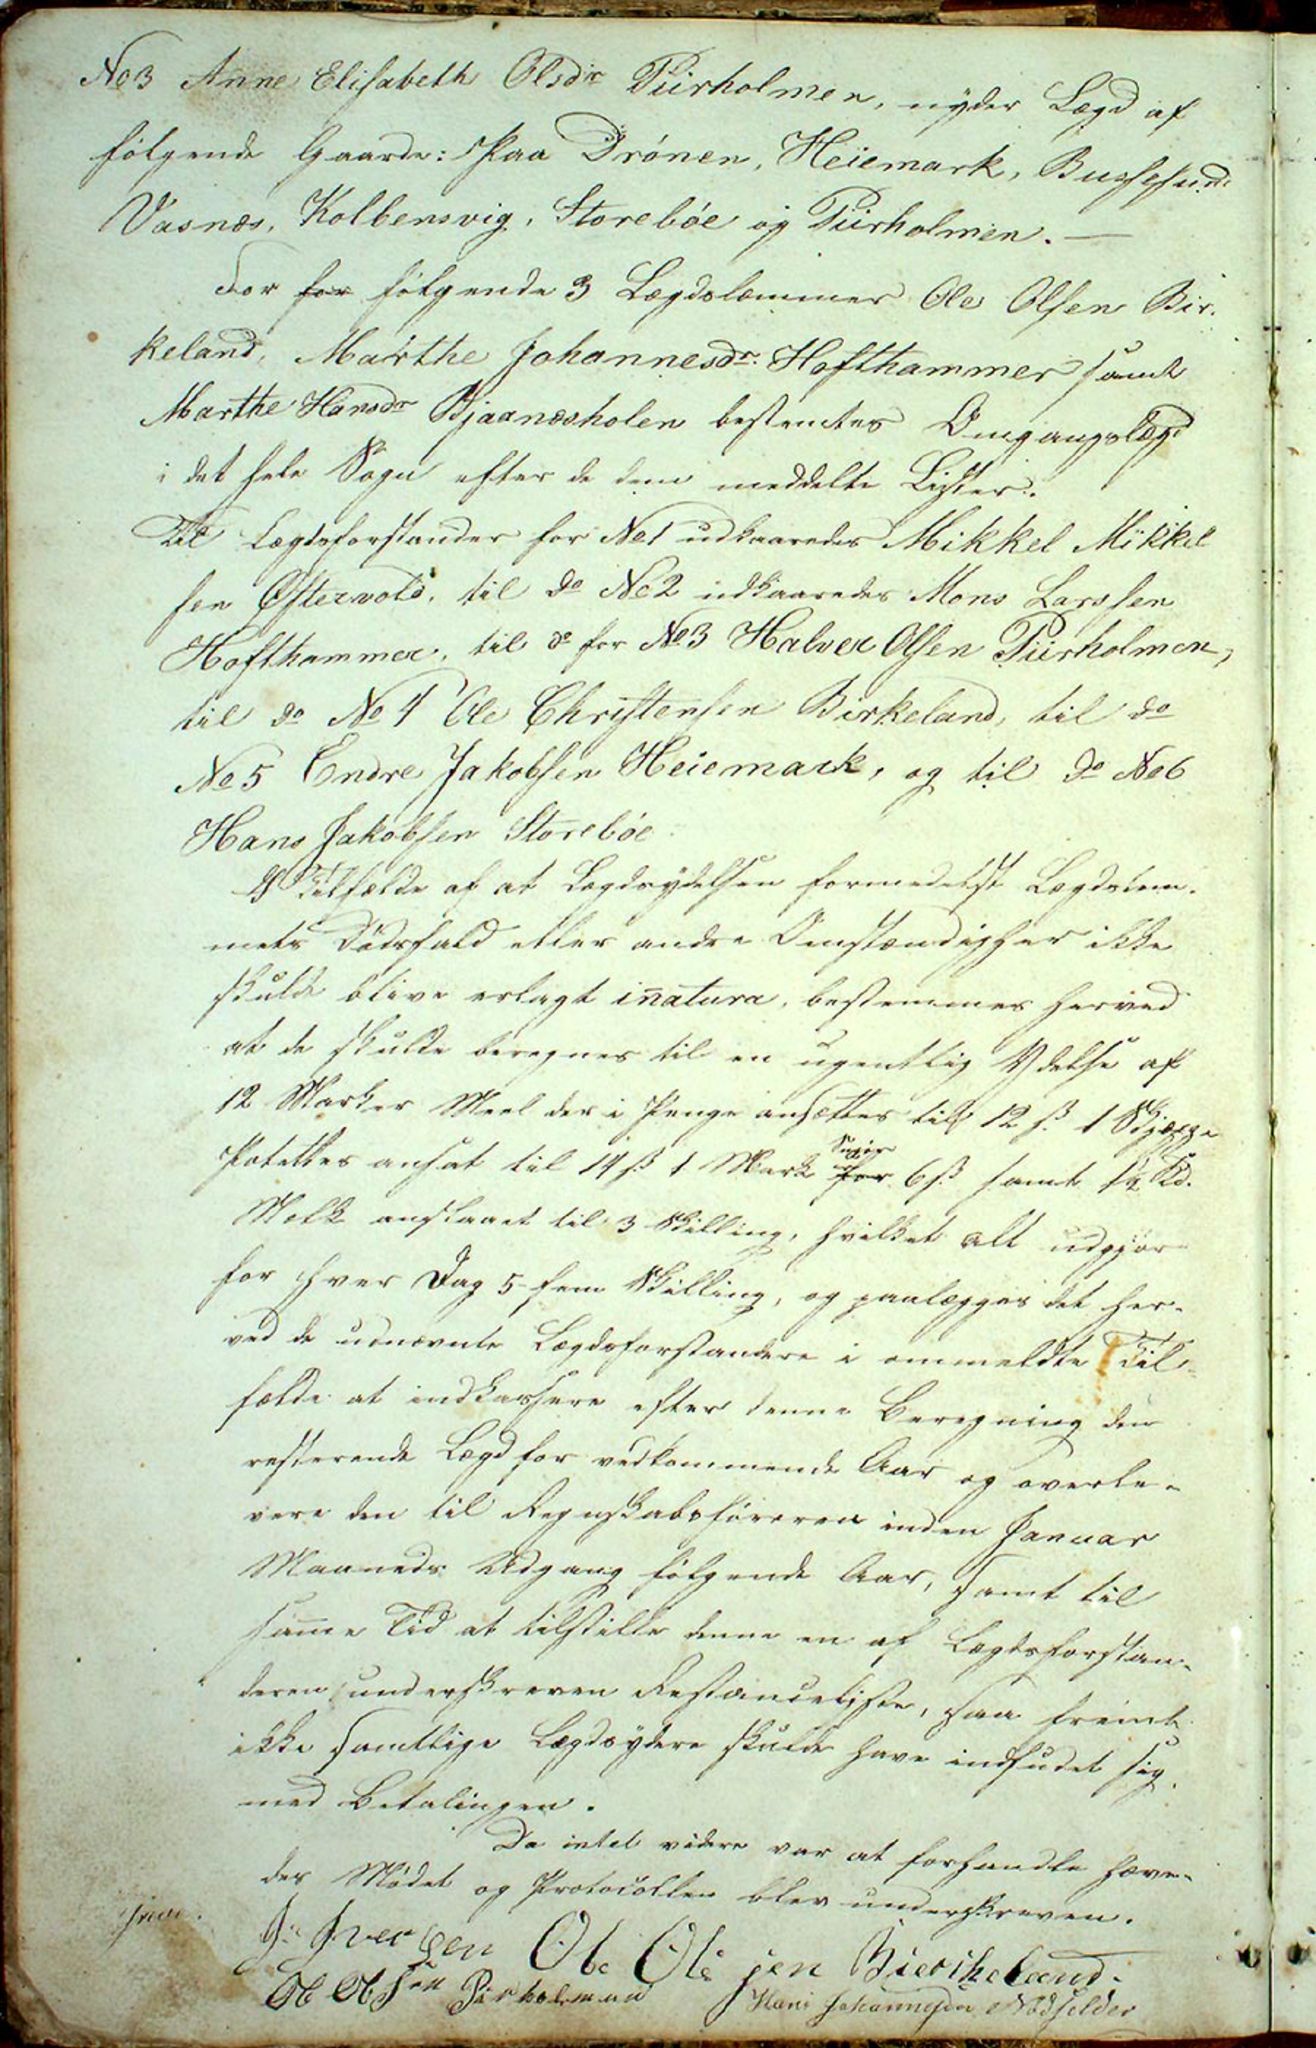 No 3 Anne Elisabeth Olsdr Piirholmen, nyder Lægd af
følgende Gaarde: Paa Drønen, Heiemark, Buschesund
Vasnæs, Kolbensvig, Storebøe og Piirholmen. —
For for følgende 3 Lægdslemmer Ole Olsen Bir-
keland, Marthe Johannesdr. Hofthammer samt
Marthe Hansdr Bjaanæsholen bestemtes Omgangslægd
i det hele Sogn efter de dem meddelte Lister.
Til Lægdsforstander for No 1 udkaaredes Mikkel Mikkel
sen Østervold, til do No 2 udkaaredes Mons Larssen
Hofthammer, til do for No 3 Halver Olsen Piirholmen,
til do No 4 Ole Christensen Birkeland, til do
No 5 Endre Jakobsen Heiemark, og til do No 6
Hans Jakobsen Storebøe
I Tilfælde af at Lægdsydelsen formedelst Lægdslem-
mets Dødsfald eller andre Omstændigher ikke
skulde blive erlagt inatura, bestemmes herved
at de skulde beregnes til en ugentlig Ydelse af
12 Marker Meel der i Penge ansættes til 12 ß. 1 Skjæppe
Potettes ansat til 14 ß 1 Mark for 6 ß samt 1½ Kd.
Melk anslaaet til 3 Skilling, hvilket alt udgjør
for hver Dag 5 fem Skilling, og paalægges det her-
ved de udnævnte Lægdsforstandere i ommeldte Til-
fælde at indkassere efter denne Beregning den
resterende Lægd for vedkommende Aar og overle-
vere den til Regnskabsføreren inden Januar
Maaneds Udgang følgende Aar, samt til
samme Tid at tilstille denne en af Lægdsforstan-
deren underskreven Restanceliste, saa fremt
ikke samtlige Lægdsydere skulde have indfudet sig
med Betalingen.
Da intet videre var at forhandle hæve-
des Mødet og Protocollen blev underskreven.
J. Iversen Ole Ole sen Bierikeland.
Ol Olsen Pirholmen Hans Johannesen Nødselder